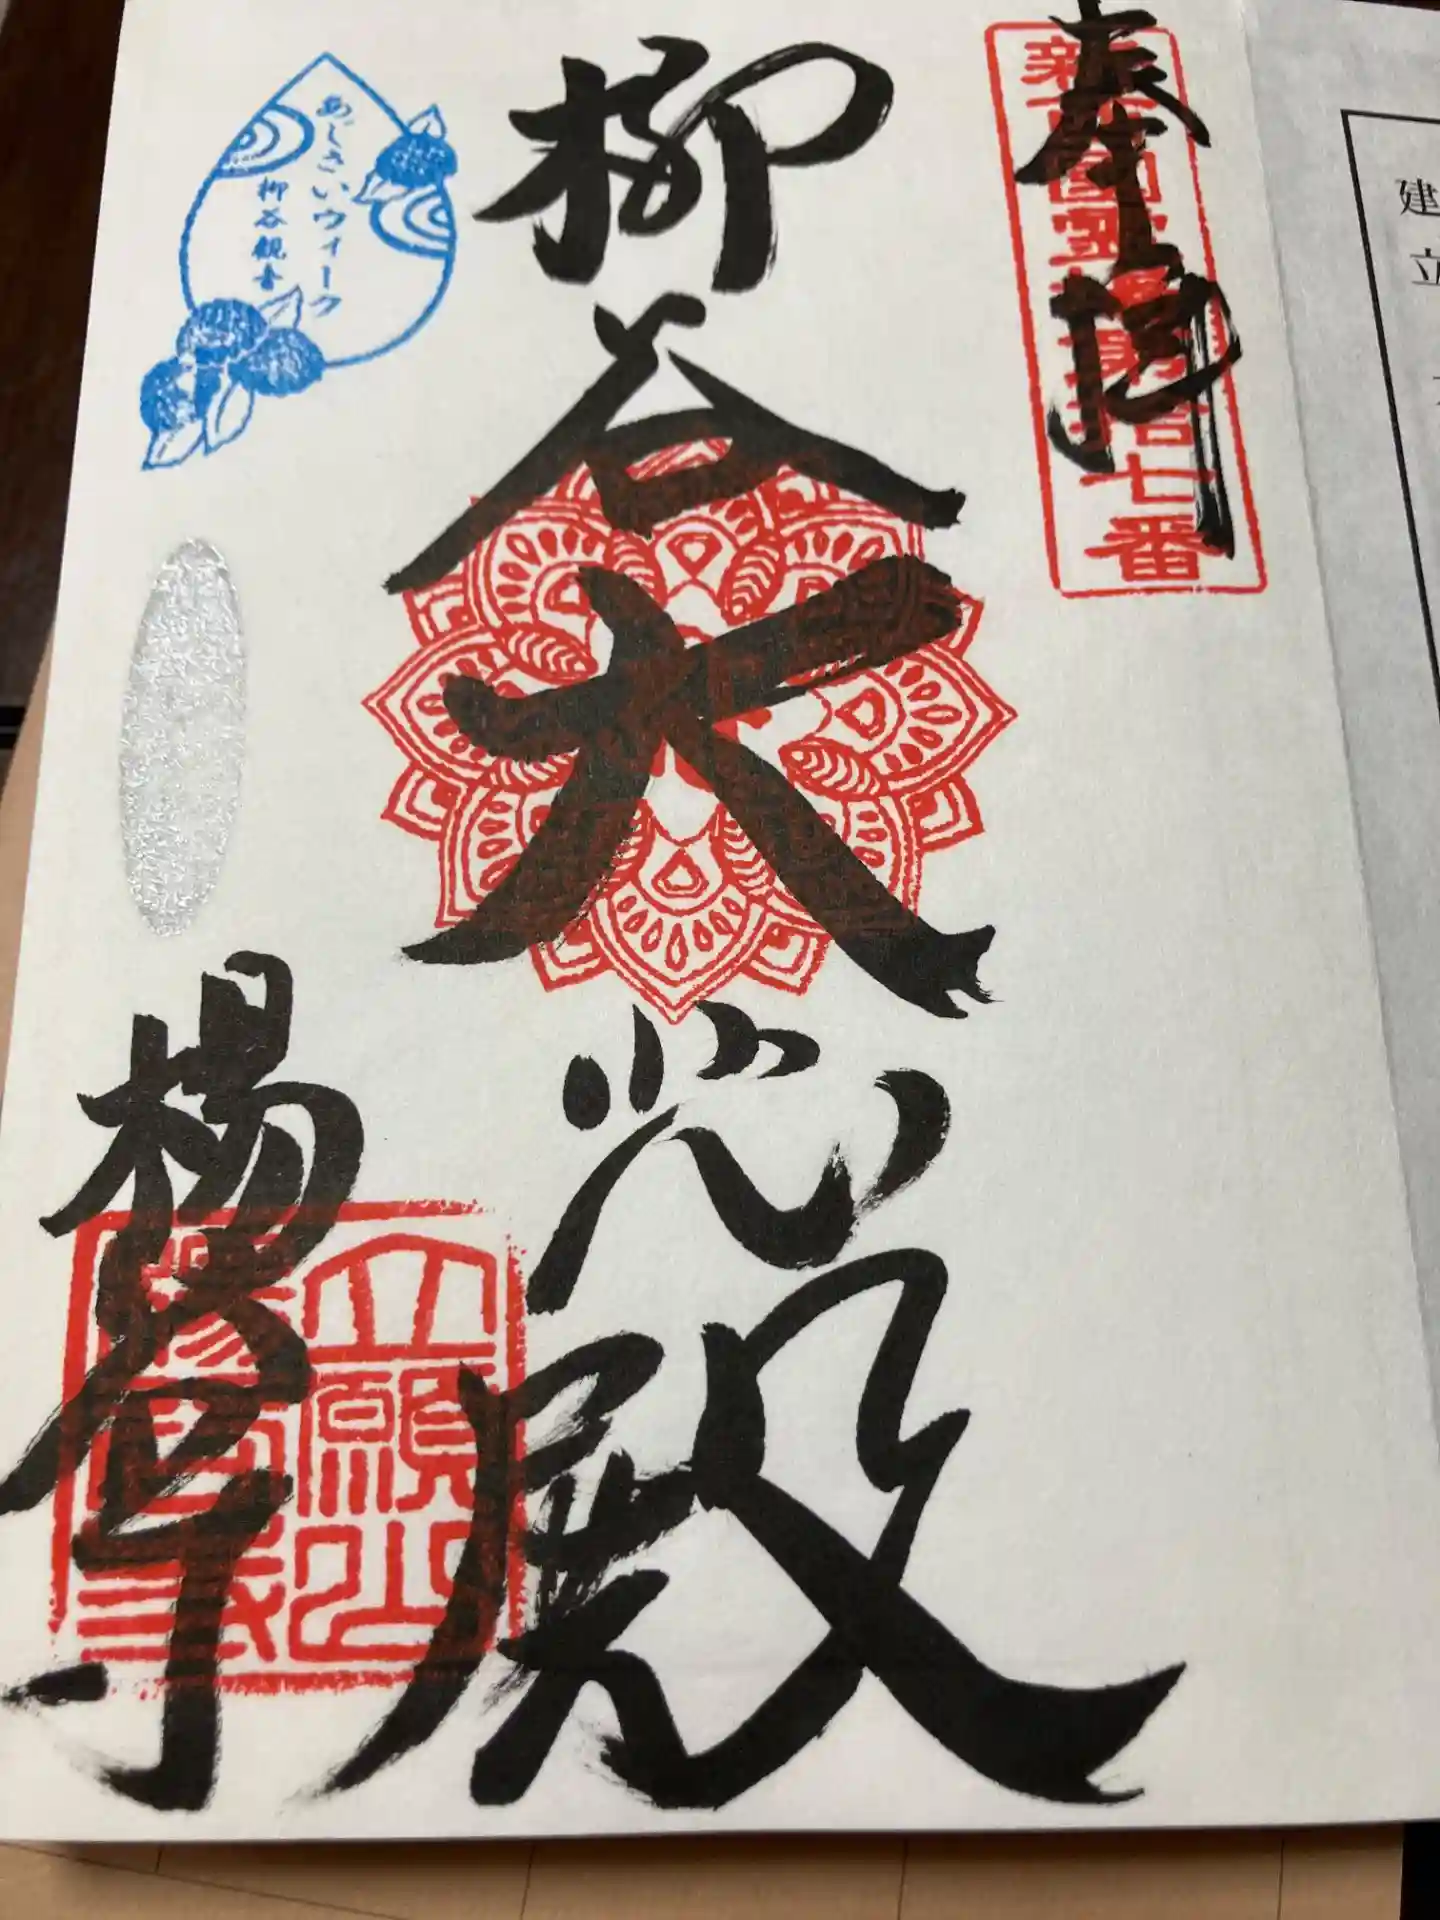 奉拝
新西国霊場第拾七番
柳谷
大悲殿
あじさいウィーク
柳谷観音
楊谷寺
立願山
建
立